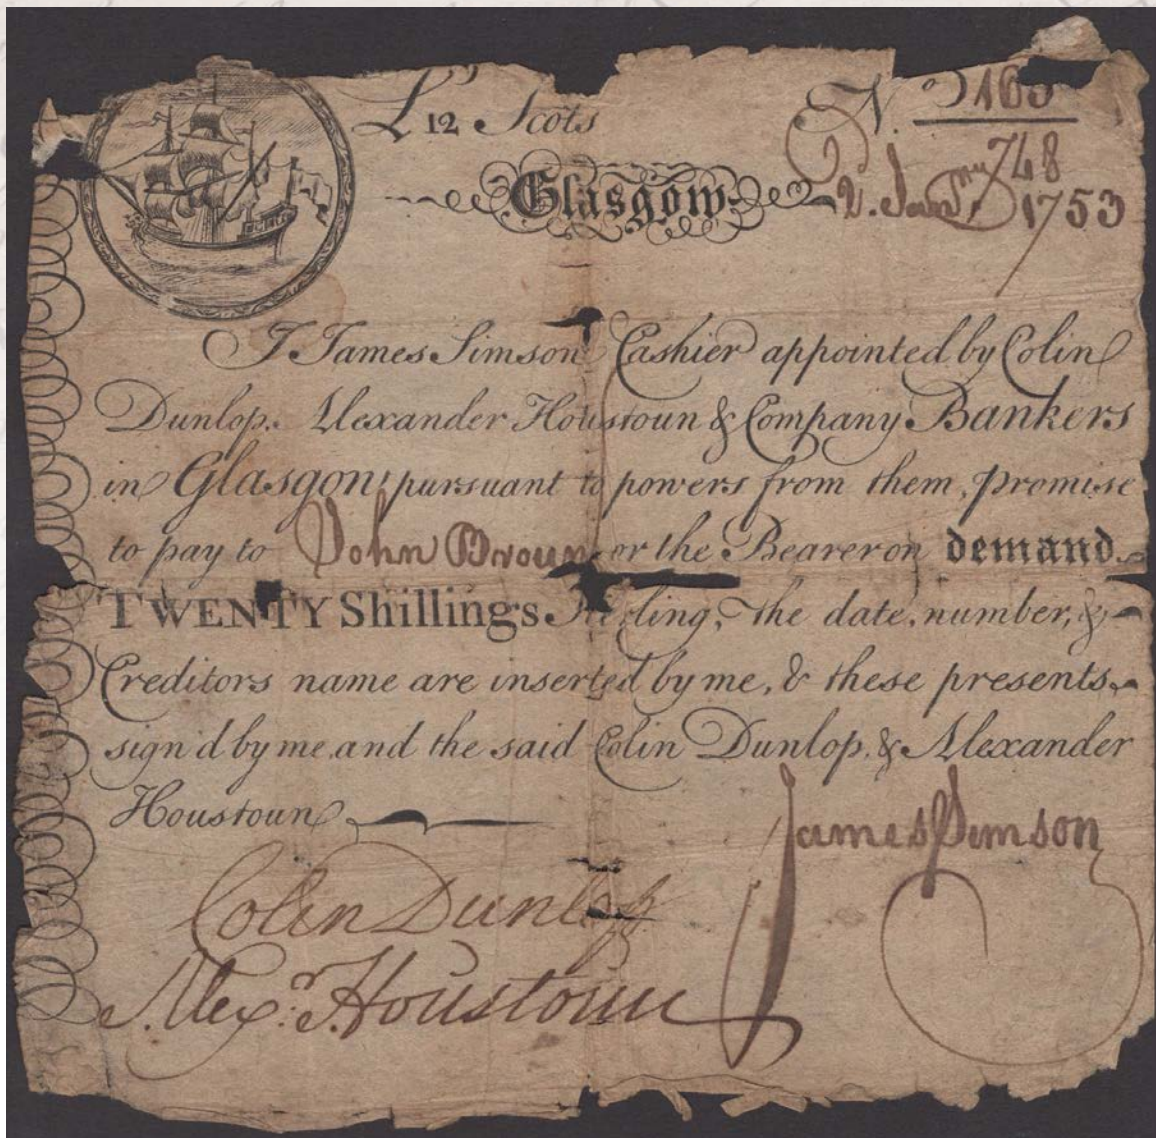 L 12 Scots
N.o
748
Glasgow 2. Jan.ry 1753
I James Simson Cashier appointed by Colin
Dunlop. Alexander Houstoun & Company Bankers
in Glasgow pursuant to powers from them, promise
to pay to John Broun or the Bearer on demand.
TWENTY Shillings Sterling, the date, number, &
Creditors name are inserted by me, & these presents
sign'd by me and the said Colin Dunlop. & Alexander
Houstoun
James Simson
Colin Dunlop
Alex.r Houstoun